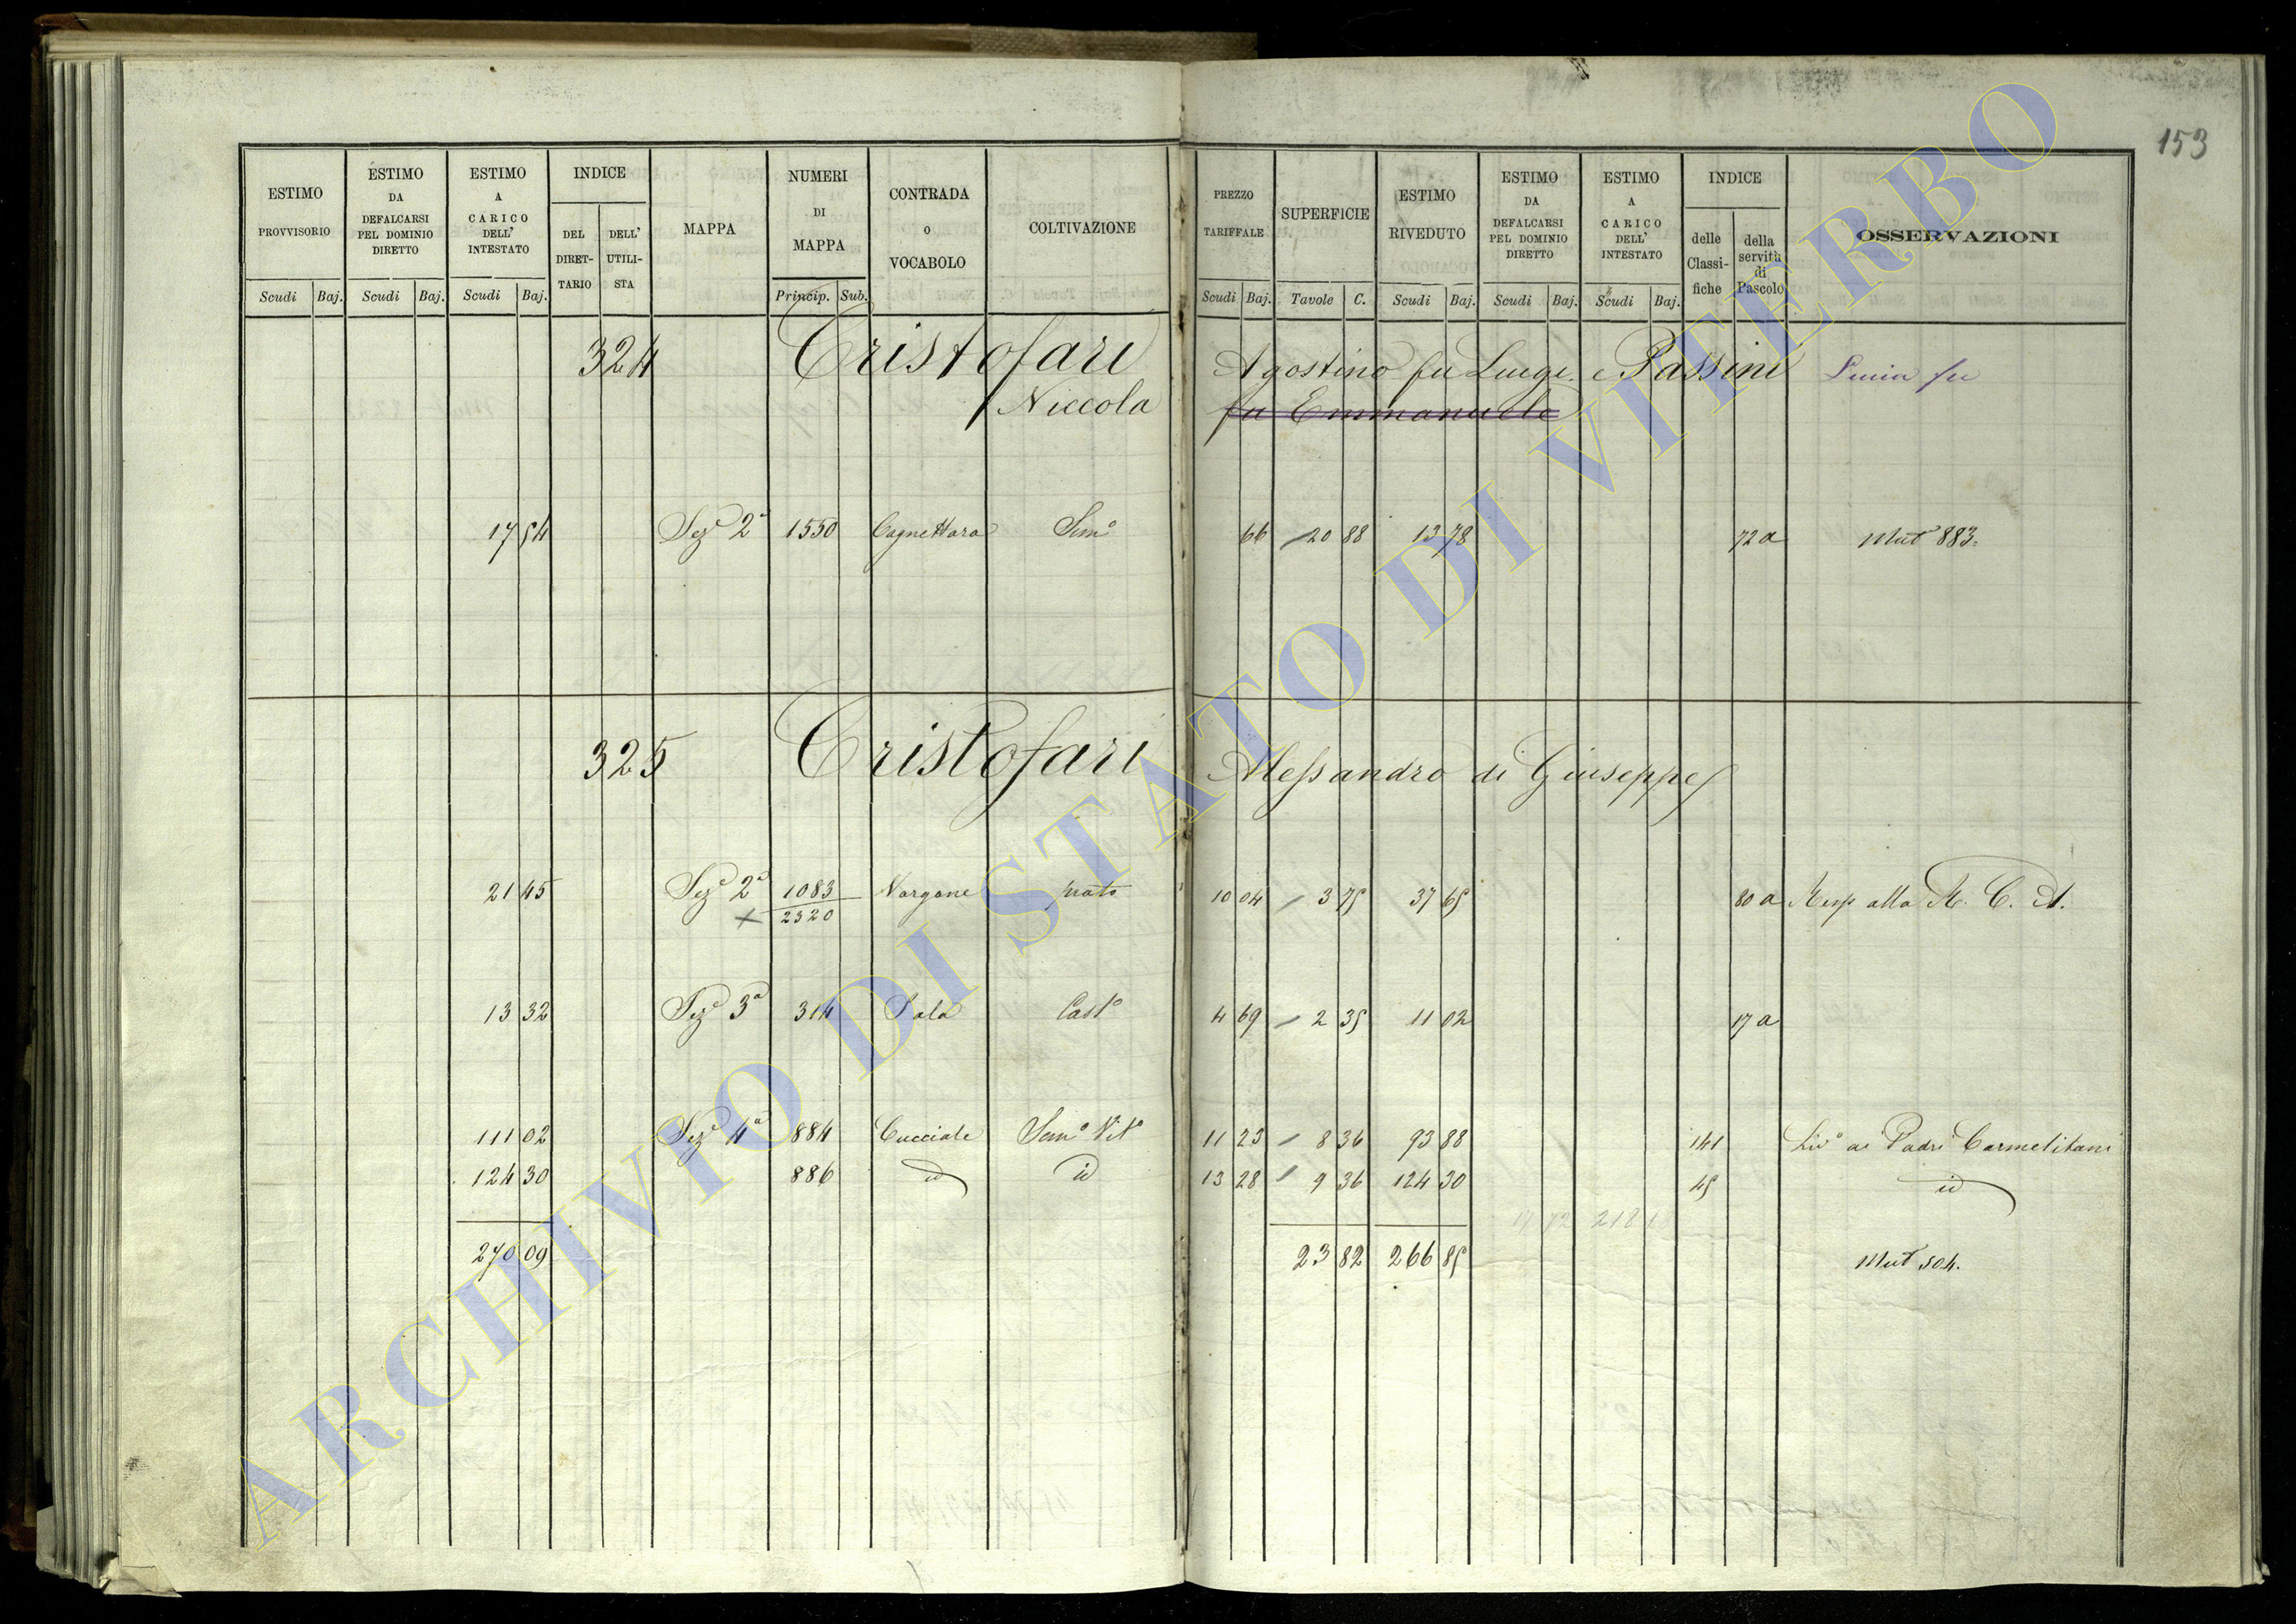 153
ESTIMO PROVVISORIO
Scudi Baj.
ESTIMO DA DEFALCARSI PEL DOMINIO DIRETTO
Scudi Baj.
ESTIMO A CARICO DELL' INTESTATO
Scudi Baj.
INDICE
DEL DIRET-TARIO
DELL' UTILI-STA
MAPPA
NUMERI DI MAPPA
Princip. Sub.
CONTRADA O VOCABOLO
COLTIVAZIONE
PREZZO TARIFFALE
Scudi Baj.
SUPERFICIE
Tavole C.
ESTIMO RIVEDUTO
Scudi Baj.
ESTIMO DA DEFALCARSI PEL DOMINIO DIRETTO
Scudi Baj.
ESTIMO A CARICO DELL' INTESTATO
Scudi Baj.
INDICE
delle Classi-fiche
della servitù di Pascolo
OSSERVAZIONI
324 Cristofari Agostino fu Luigi e Passini Lucia fu
Niccola fu Emmanuele
17 54 Sez.e 2a 1550 Cagnettara Sem.o 66 20 88 13 78 72 a Mut 883.
325 Cristofari Alessandro di Giuseppe
21 45 Sez.e 2a 1083 Norgane prato 10 04 3 75 37 65 80 a Resp alla R. C. A.
x 2320
13 32 Sez.e 3a 314 Sala Cast.o 4 69 2 35 11 02 17 a
111 02 Sez.e 4a 884 Cucciale Sem.o Vit.o 11 23 8 36 93 88 141 Liv.o ai Padri Carmelitani
124 30 886 id id 13 28 9 36 124 30 45 id
218 1
270 09 23 82 266 85 Mut 504.
ARCHIVIO DI STATO DI VITERBO